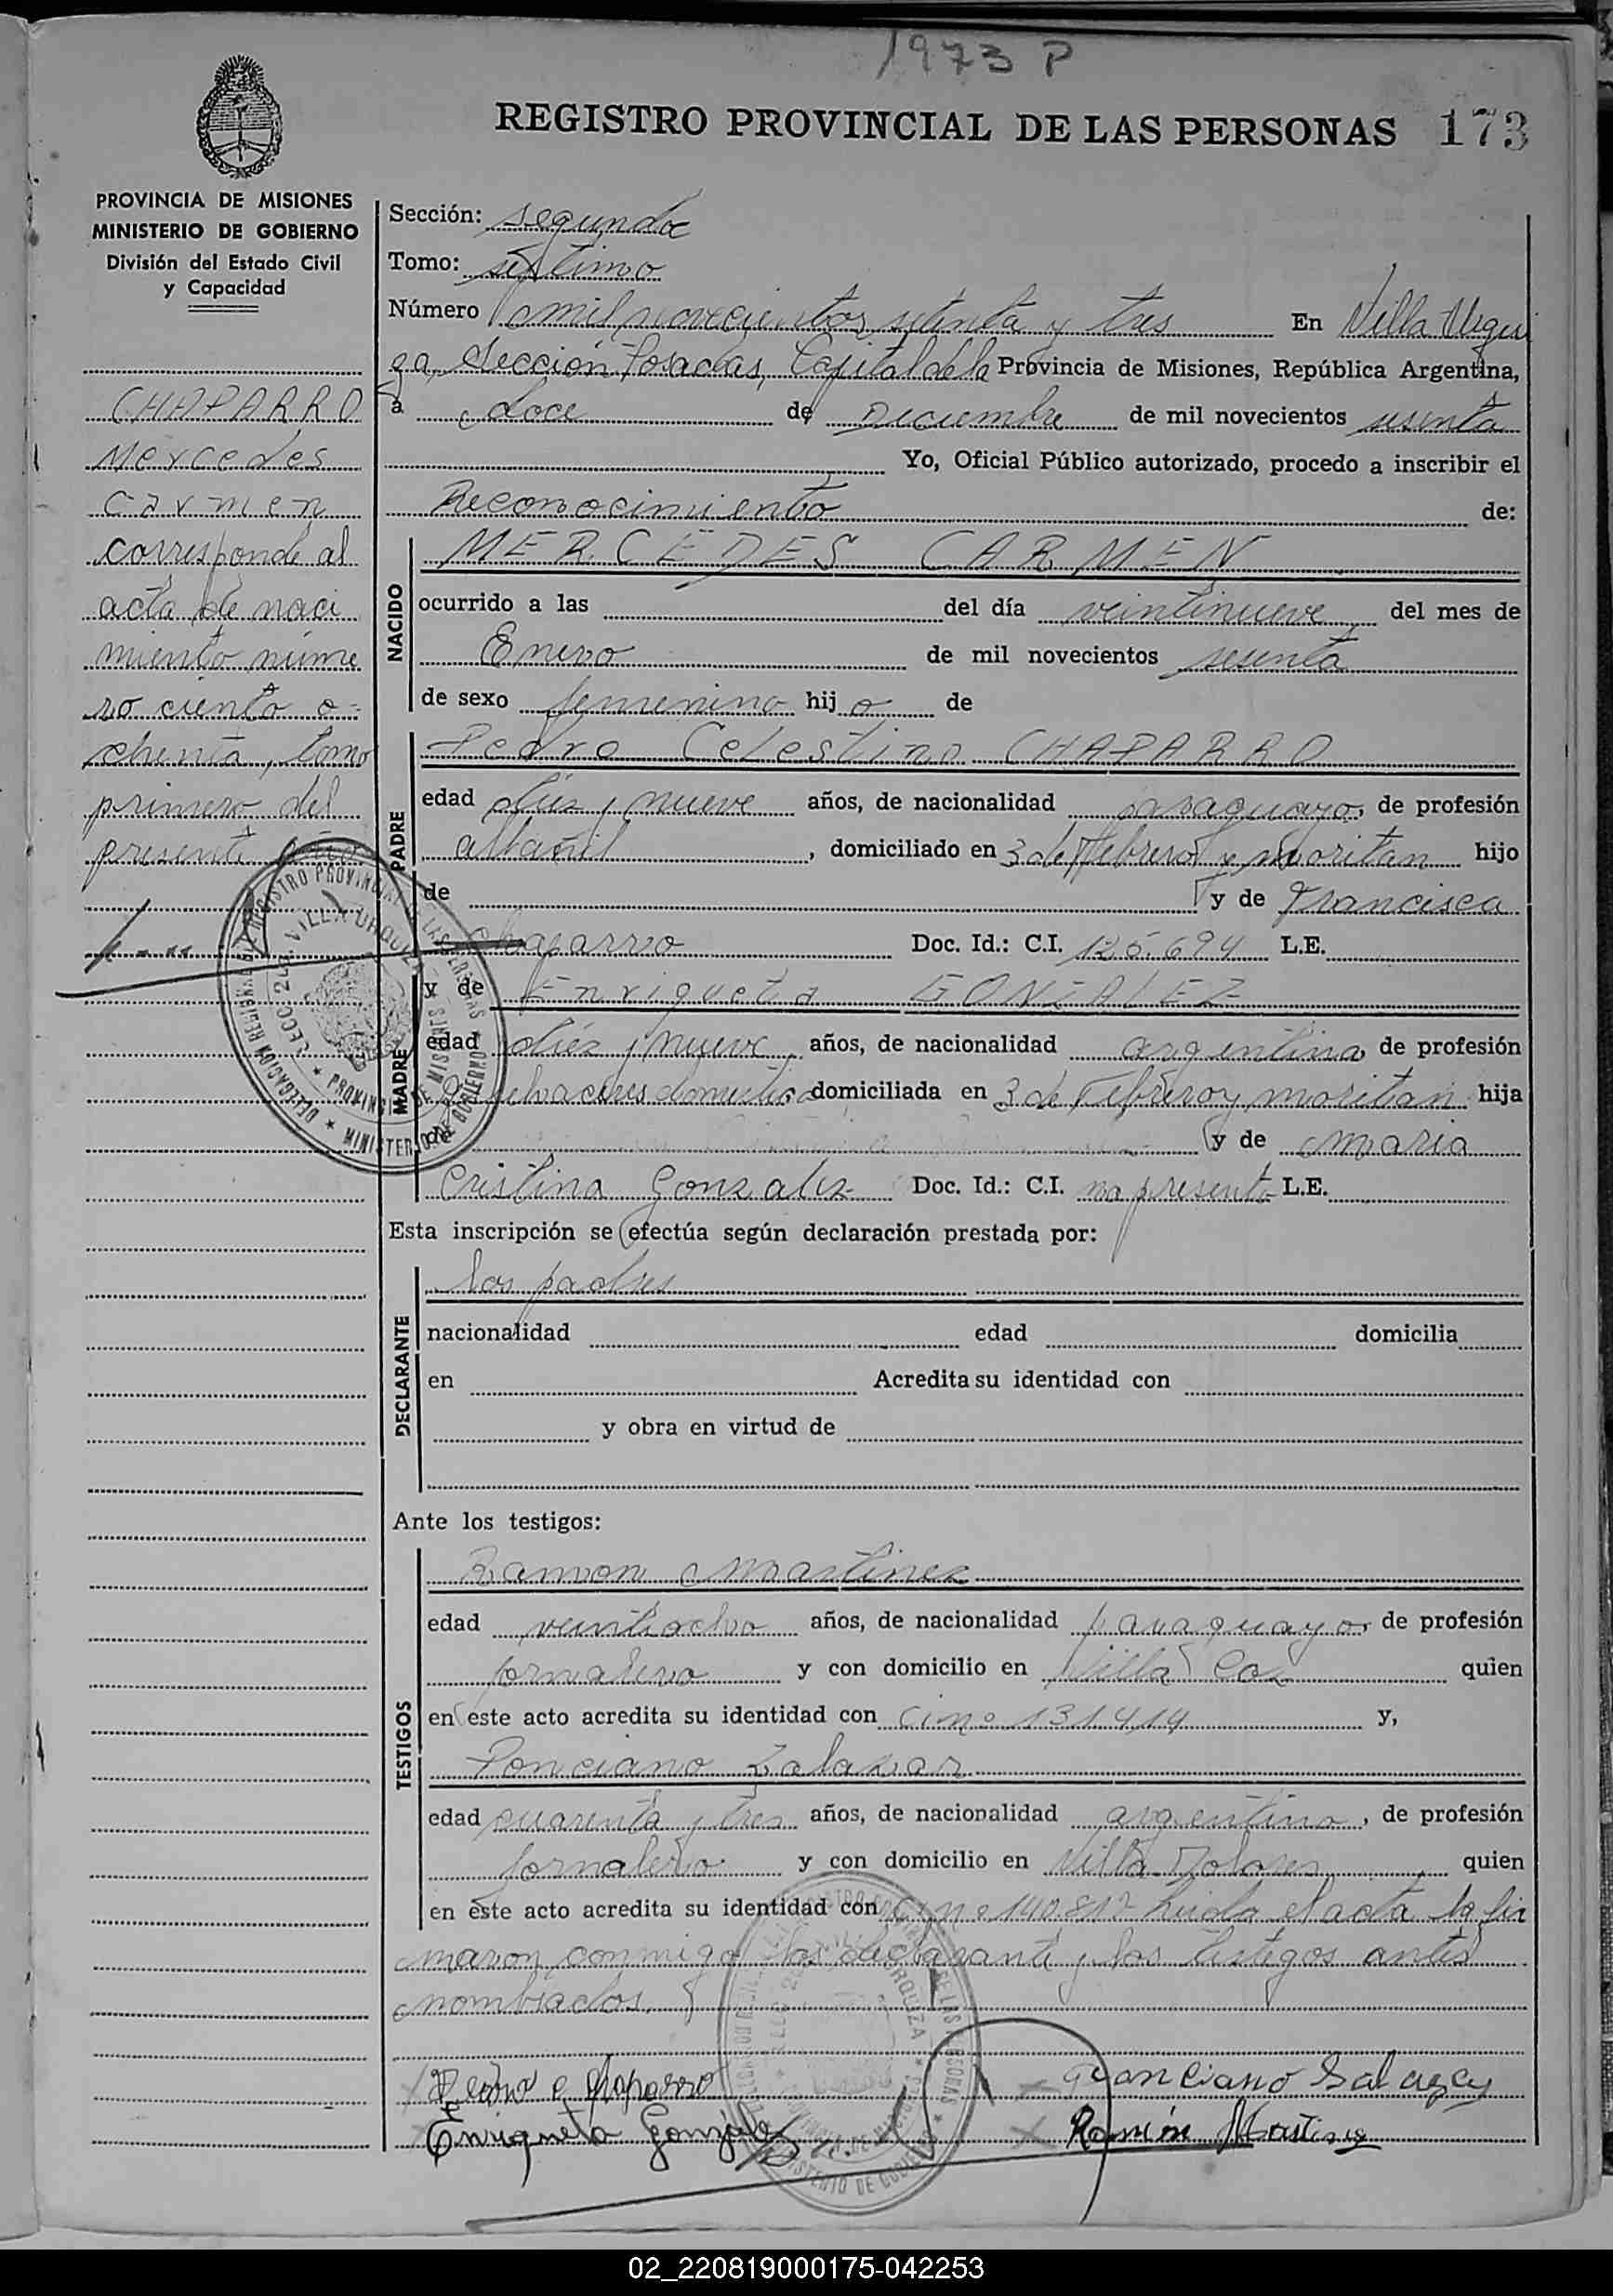 1973 P
REGISTRO PROVINCIAL DE LAS PERSONAS 173
PROVINCIA DE MISIONES
MINISTERIO DE GOBIERNO
División del Estado Civil
y Capacidad
CHAPARRO
Mercedes
Carmen
corresponde al
acta de naci
miento núme
ro ciento o=
chenta, tomo
primero del
presente año
Sección: segunda
Tomo: séptimo
Número mil novecientos setenta y tres En Villa Urqui
za, Sección Posadas, Capital de la Provincia de Misiones, República Argentina,
a doce de Diciembre de mil novecientos sesenta
Yo, Oficial Público autorizado, procedo a inscribir el
Reconocimiento de:
NACIDO
MERCEDES CARMEN
ocurrido a las del día veintinueve del mes de
Enero de mil novecientos sesenta
de sexo femenino hij o de
PADRE
Pedro Celestino CHAPARRO
edad diez y nueve años, de nacionalidad paraguayo, de profesión
albañil, domiciliado en 3 de Febrero y moritan hijo
de y de Francisca
Chaparro Doc. Id.: C.I. 125.694 L.E.
MADRE
y de Enriqueta GONZALEZ
edad diez y nueve años, de nacionalidad argentina, de profesión
domiciliada en 3 de Febrero y moritan hija
de y de maria
Cristina Gonzalez Doc. Id.: C.I. no presenta L.E.
Esta inscripción se efectúa según declaración prestada por:
DECLARANTE
los padres
nacionalidad edad domicilia
en Acredita su identidad con
y obra en virtud de
Ante los testigos:
TESTIGOS
Ramon Martinez
edad veintiocho años, de nacionalidad paraguayo, de profesión
jornalero y con domicilio en Villa quien
en este acto acredita su identidad con C.I. nº 131414 y,
Ponciano Zalazar
edad cuarenta y tres años, de nacionalidad argentino, de profesión
jornalero y con domicilio en Villa Dolores quien
en este acto acredita su identidad con C.I. nº 140.812 leida el acta la fir
maron conmigo los declarante y los testigos antes
nombrados.
Pedro C Chaparro Ponciano Salazar
Enriqueta González Ramón Martinez
REGISTRO PROVINCIAL DE LAS PERSONAS
SECC. 2da. VILLA URQUIZA
PROVINCIA DE MISIONES
MINISTERIO DE GOBIERNO
02_220819000175-042253